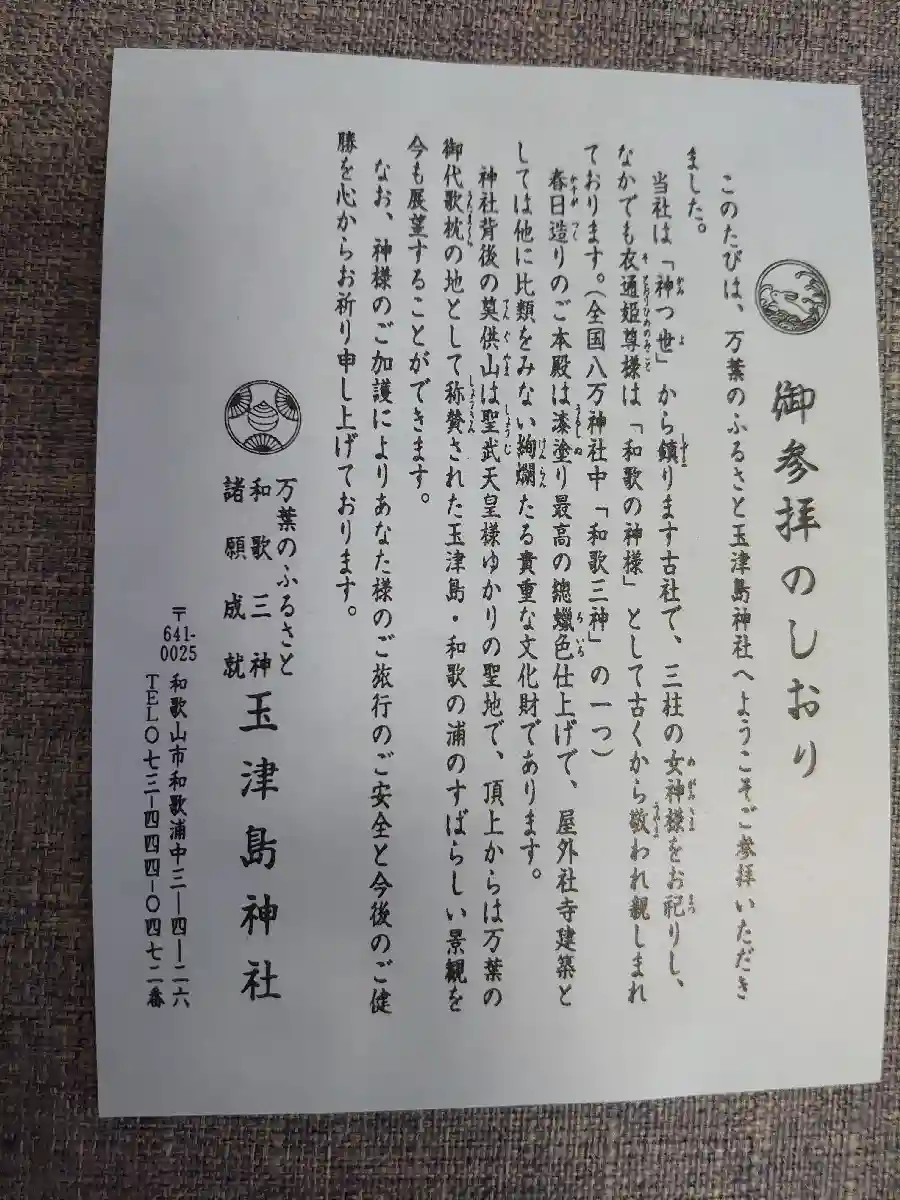 御参拝のしおり
このたびは、万葉のふるさと玉津島神社へようこそご参拝いただき
ました。
当社は「神つ世」から鎮ります古社で、三柱の女神様をお祀りし、
なかでも衣通姫尊様は「和歌の神様」として古くから敬われ親しまれ
ております。(全国八万神社中「和歌三神」の一つ)
春日造りのご本殿は漆塗り最高の總蠟色仕上げで、屋外社寺建築と
しては他に比類をみない絢爛たる貴重な文化財であります。
神社背後の奠供山は聖武天皇様ゆかりの聖地で、頂上からは万葉の
御代歌枕の地として称賛された玉津島・和歌の浦のすばらしい景観を
今も展望することができます。
なお、神様のご加護によりあなた様のご旅行のご安全と今後のご健
勝を心からお祈り申し上げております。
万葉のふるさと
和歌三神
諸願成就
玉津島神社
〒641-0025 和歌山市和歌浦中三ー四ー二六
TEL〇七三ー四四四ー〇四七二番